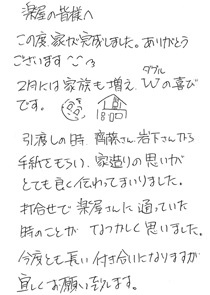 楽屋の皆様へ
この度家が完成しました。ありがとう
ございます
2月には家族も増え Wの喜び
ダブル
です。
引渡しの時、齊藤さん、岩下さんから
手紙をもらい、家造りの思いが
とても良く伝わってまいりました。
打合せで楽屋さんに通っていた
時のことが なつかしく思いました。
今後とも長い付き合いになりますが
宜しくお願い致します。